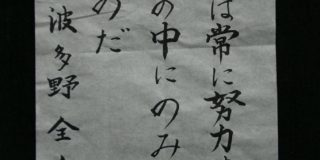 は常に努力
の中にのみ
のだ
波多野全